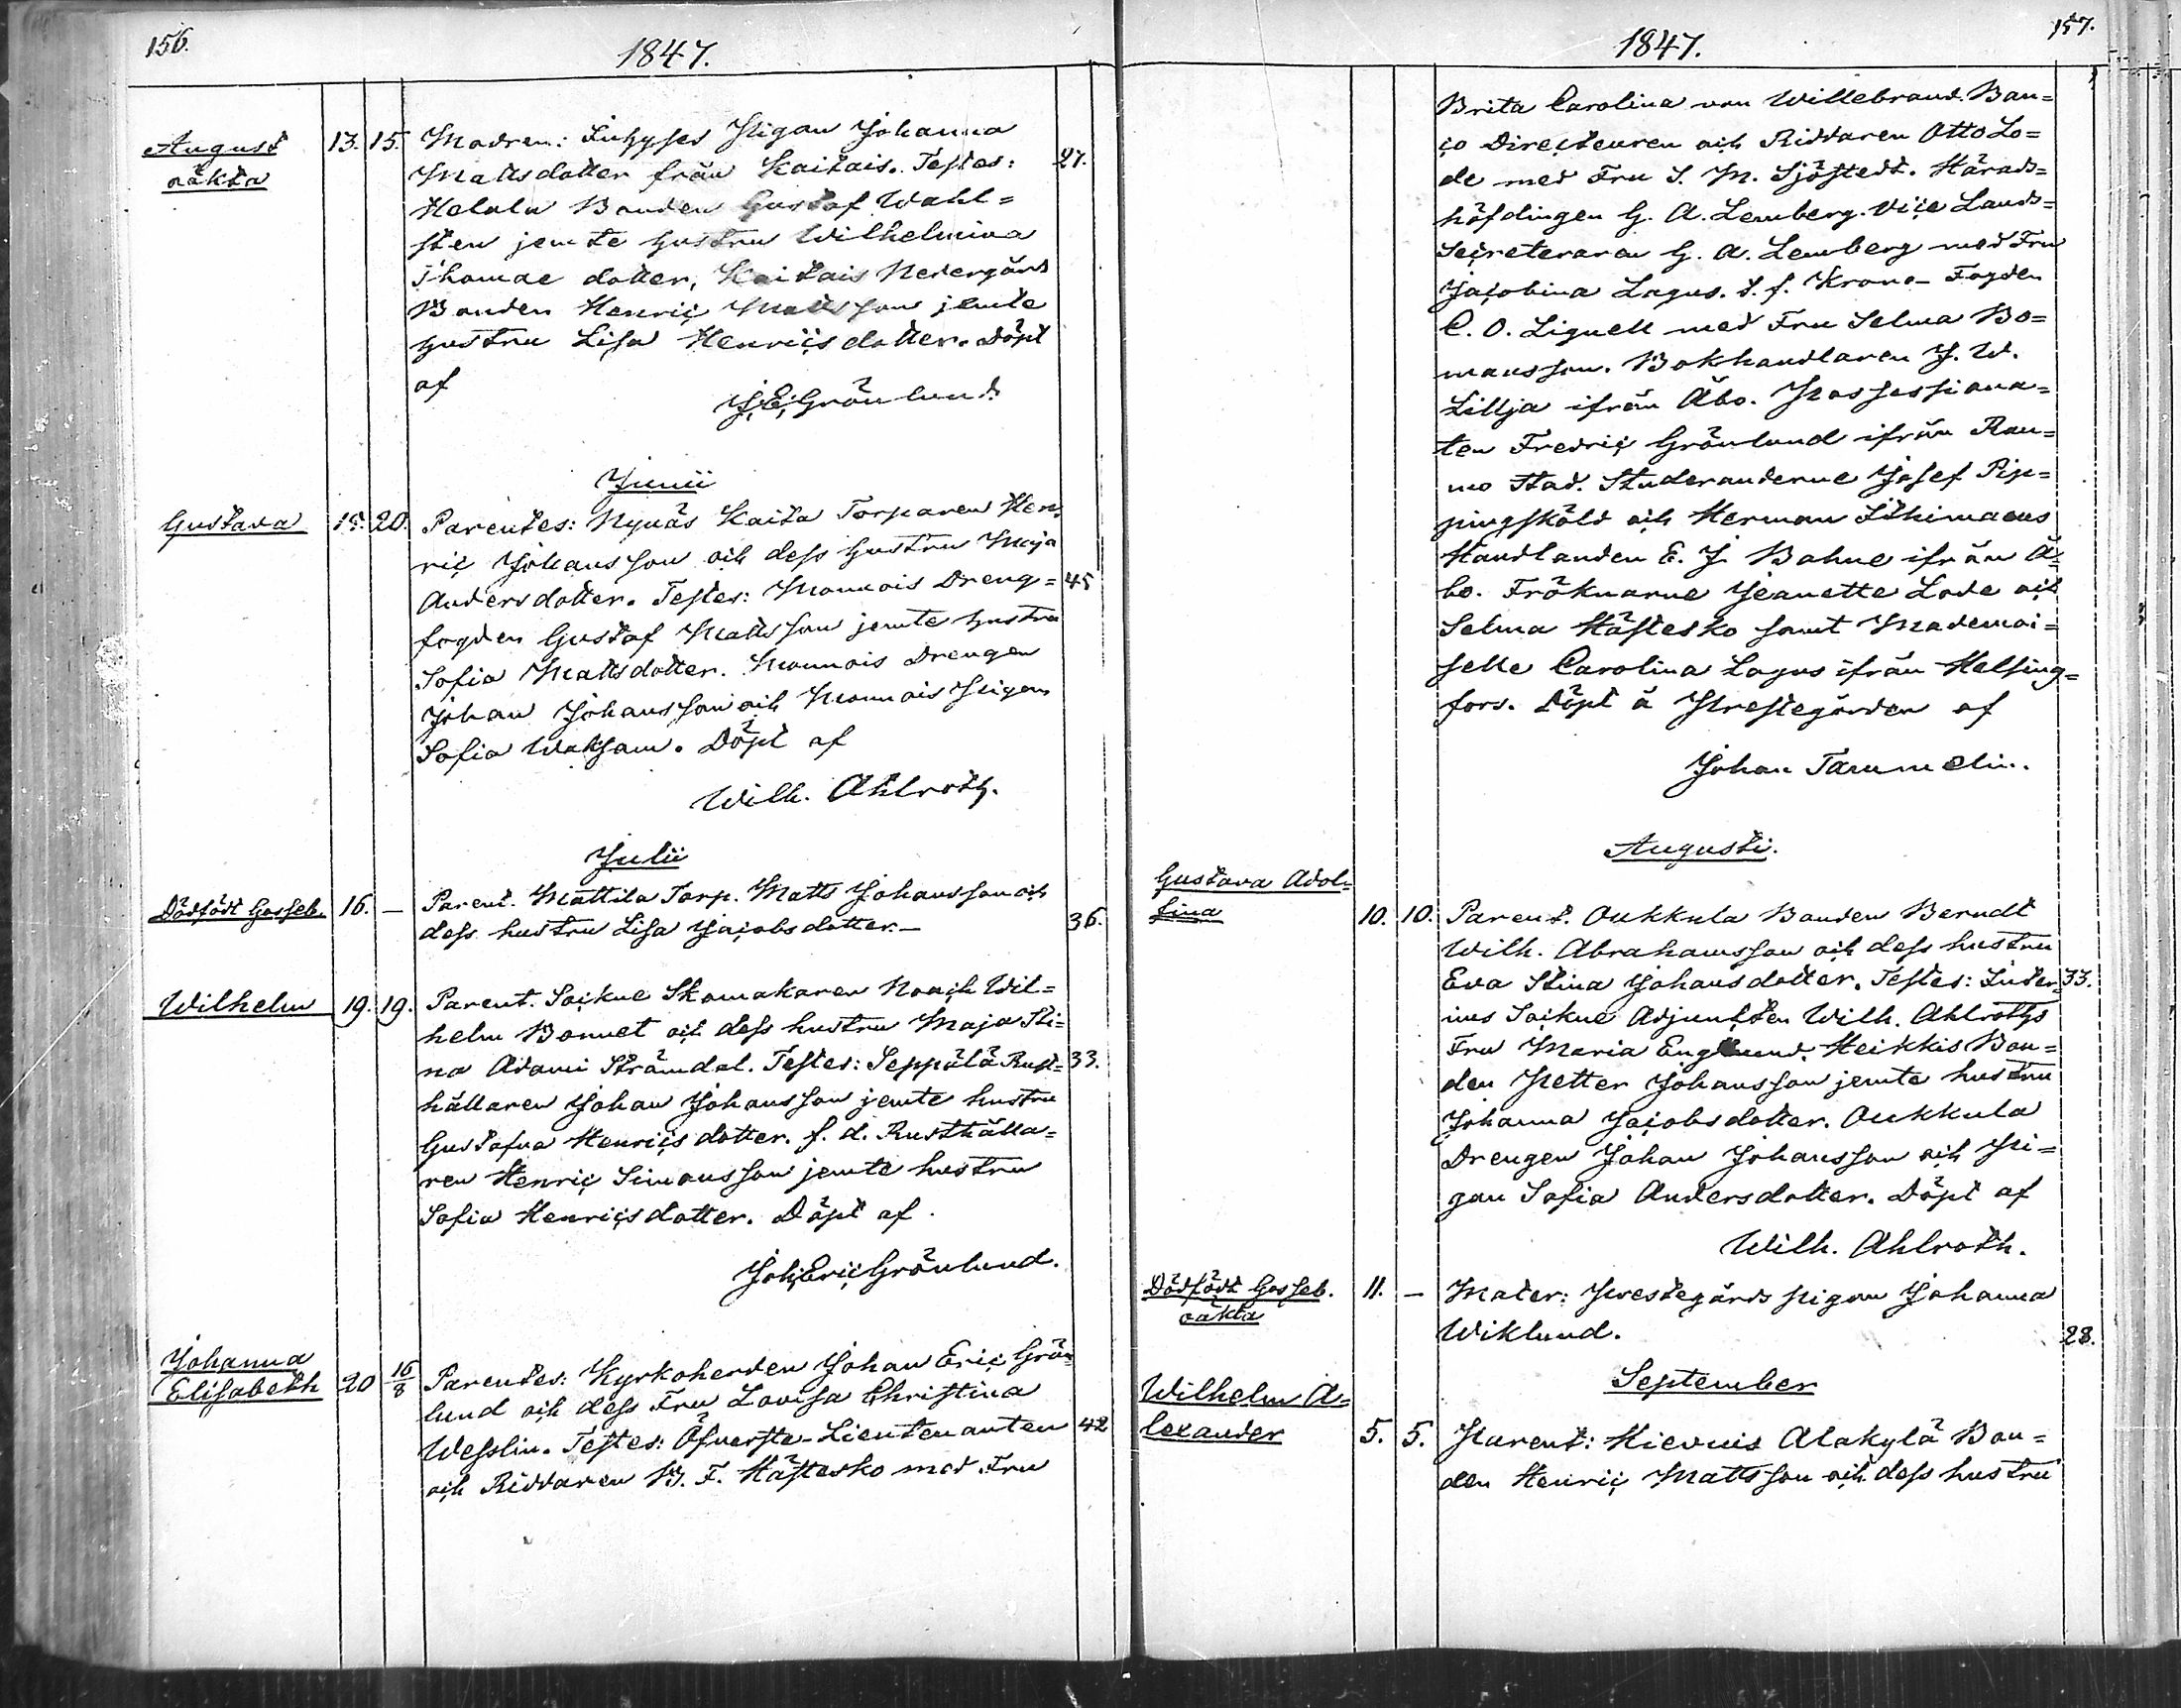 156.
1847.
August oäkta 13. 15. Modren: Inhyses Pigan Johanna
Mattsdotter från Kaitais. Testes: 27.
Helala Bonden Gustaf Wahl=
sten jemte hustru Wilhelmina
Thomae dotter, Kaitais Nedergård
Bonden Henric Mattsson jemte
hustru Lisa Henricsdotter. Döpt
af
J. E. Grönlund
Junii
Gustava 15. 20. Parentes: Nynäs Kaita Torparen Hen=
ric Johansson och dess hustru Maja
Andersdotter. Testes: Monnois Dreng= 45
fogden Gustaf Mattsson jemte hustru
Sofia Mattsdotter. Monnois Drengen
Johan Johansson och Monnois Pigan
Sofia . Döpt af
Wilh. Ahlroth.
Julii
Dödfödt Gosseb. 16. — Parent. Mattila Torp. Matts Johansson och
dess hustru Lisa Jacobsdotter.— 36.
Wilhelm 19. 19. Parent. Soikne Skomakaren Noach Wil=
helm Bonnet och dess hustru Maja Sti=
na Adami Strömdal. Testes: Seppälä Rust= 33.
hållaren Johan Johansson jemte hustru
Gustafva Henricsdotter. f. d. Rusthålla=
ren Henric Simonsson jemte hustru
Sofia Henricsdotter. Döpt af
Joh. Eric Grönlund.
Johanna
Elisabeth 20 16/8 Parentes: Kyrkoherden Johan Eric Grön=
lund och dess Fru Lovisa Christina
Wesslin. Testes: Öfverste-Lieutenanten 42
och Riddaren B. F. Hästesko med Fru
157.
1847.
Brita Carolina von Willebrand. Ban=
co Directeuren och Riddaren Otto Lo=
de med Fru S. M. Sjöstedt. Härads=
höfdingen G. A. Lemberg. Vice Lands=
Secreteraren G. A. Lemberg med Fru
Jacobina Lagus. t. f. Krono-Fogden
C. O. Lignell med Fru Selma Bo=
mansson. Bokhandlaren J. W.
Lillja ifrån Åbo. Possessiona=
ten Fredric Grönlund ifrån Rau=
mo Stad. Studeranderne Josef Pip=
pingsköld och Herman Lthimaeus
Handlanden E. J. Bahne ifrån Å=
bo. Fröknarne Jeanette Lode och
Selma Hästesko samt Mademoi=
selle Carolina Lagus ifrån Helsing=
fors. Döpt å Prestegården af
Johan Tammelin.
Augusti.
Gustava Adol=
fina 10. 10. Parent. Oukkula Bonden Berndt
Wilh. Abrahamsson och dess hustru
Eva Stina Johansdotter. Testes: Inter= 33.
ims Soikne Adjunkten Wilh. Ahlroths
Fru Maria Englund. Heikkis Bon=
den Petter Johansson jemte hustru
Johanna Jacobsdotter. Oukkula
Drengen Johan Johansson och Pi=
gan Sofia Andersdotter. Döpt af
Wilh. Ahlroth.
Dödfödt Gosseb. oäkta 11. — Mater: Prestegårds pigan Johanna
Wiklund. 28.
September
Wilhelm A=
lexander 5. 5. Parent: Hievuis Alakylä Bon=
den Henric Mattsson och dess hustru